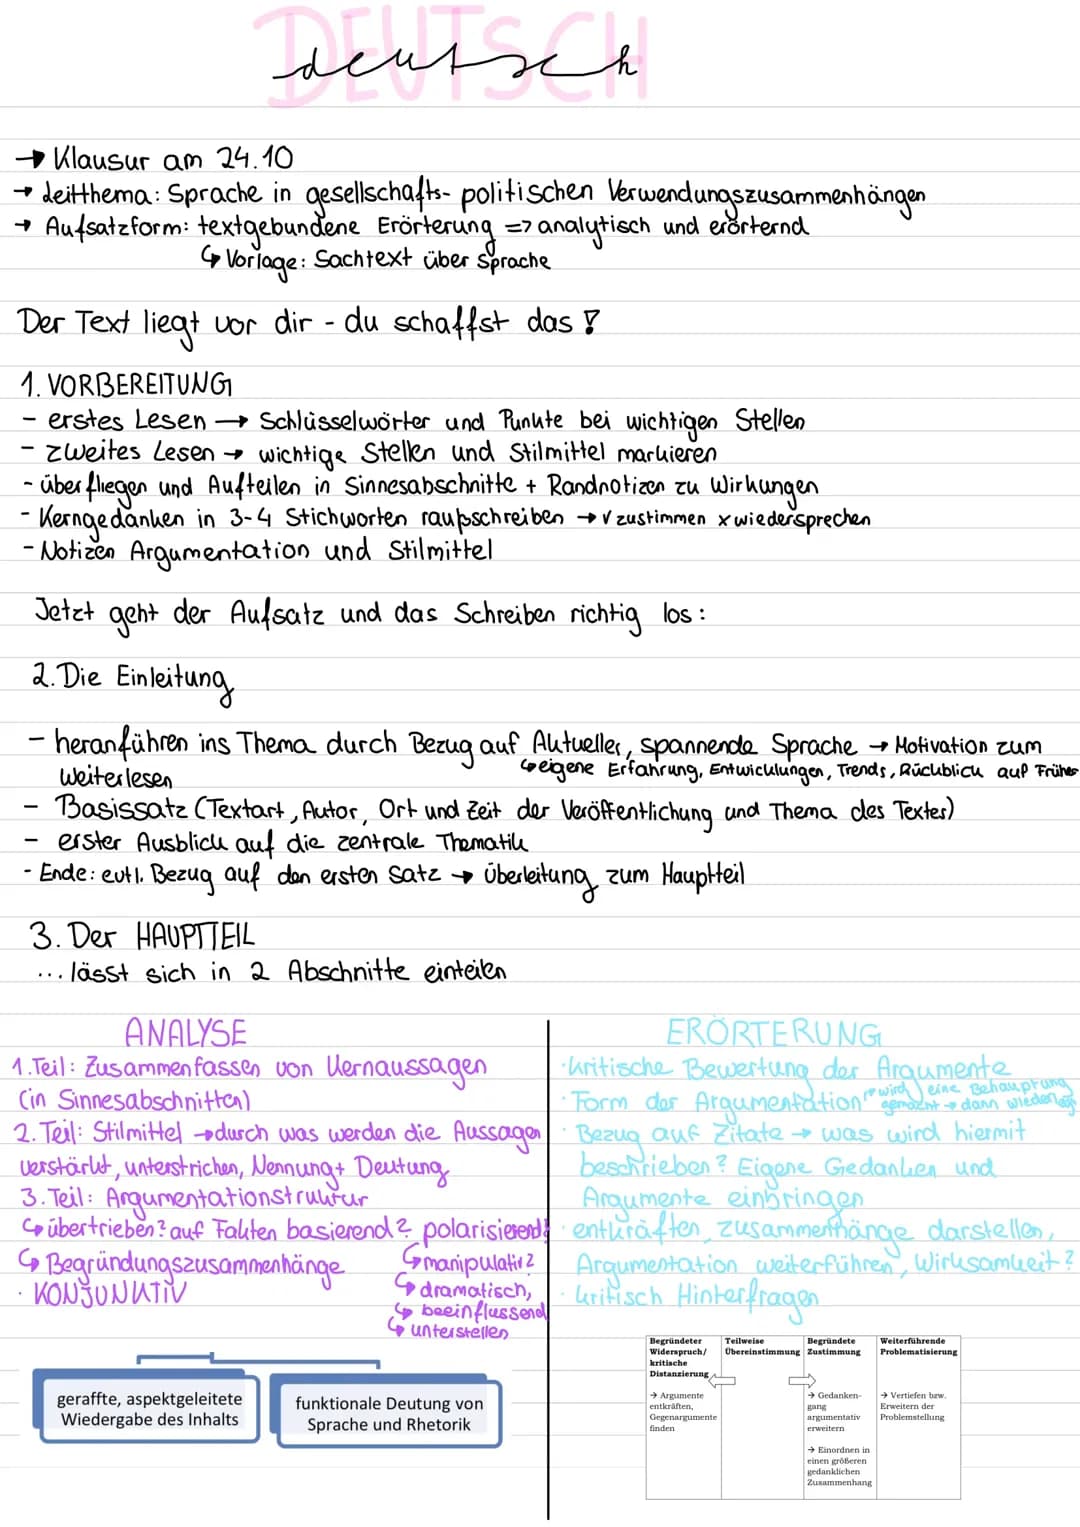 DEUTSCH
deutsch
→ Klausur am 24.10
→ Leitthema: Sprache in gesellschafts-politischen Verwendungszusammenhängen
→ Aufsatzform: textgebundene Erörterung => analytisch und erörternd
↳ Vorlage: Sachtext über Sprache
Der Text liegt vor dir - du schaffst das!
1. VORBEREITUNG
- erstes Lesen → Schlüsselwörter und Punkte bei wichtigen Stellen
- zweites Lesen → wichtige Stellen und Stilmittel markieren
- überfliegen und Aufteilen in Sinnesabschnitte + Randnotizen zu Wirkungen
- Kerngedanken in 3-4 Stichworten rausschreiben → √ zustimmen x wiedersprechen
- Notizen Argumentation und Stilmittel
Jetzt geht der Aufsatz und das Schreiben richtig los:
2. Die Einleitung
- heranführen ins Thema durch Bezug auf Aktueller, spannende Sprache → Motivation zum
weiterlesen
↳ eigene Erfahrung, Entwicklungen, Trends, Rückblick auf Früher
- Basissatz (Textart, Autor, Ort und Zeit der Veröffentlichung und Thema des Textes)
- erster Ausblick auf die zentrale Thematik
- Ende: evtl. Bezug auf den ersten Satz → Überleitung zum Hauptteil
3. Der HAUPTTEIL
... lässt sich in 2 Abschnitte einteilen
ANALYSE
1. Teil: Zusammenfassen von Kernaussagen
(in Sinnesabschnitten)
2. Teil: Stilmittel → durch was werden die Aussagen
verstärkt, unterstrichen, Nennung + Deutung
3. Teil: Argumentationstruktur
↳ übertrieben? auf Fakten basierend? polarisierend?
↳ Begründungszusammenhänge
↳ manipulativ?
· KONJUNKTIV
↳ dramatisch,
↳ beeinflussend
↳ unterstellen
geraffte, aspektgeleitete
Wiedergabe des Inhalts
funktionale Deutung von
Sprache und Rhetorik
ERÖRTERUNG
· kritische Bewertung der Argumente
· Form der Argumentation
wird eine Behauptung
gemacht → dann
· Bezug auf Zitate → was wird hiermit
beschrieben? Eigene Gedanken und
Argumente einbringen
· entkräften, zusammenhänge darstellen,
Argumentation weiterführen, Wirksamkeit?
· kritisch Hinterfragen
Begründeter
Widerspruch/
kritische
Distanzierung
→ Argumente
entkräften,
Gegenargumente
finden
Teilweise
Übereinstimmung
Begründete
Zustimmung
→ Gedanken-
gang
argumentativ
erweitern
→ Einordnen in
einen größeren
gedanklichen
Zusammenhang
Weiterführende
Problematisierung
→ Vertiefen bzw.
Erweitern der
Problemstellung